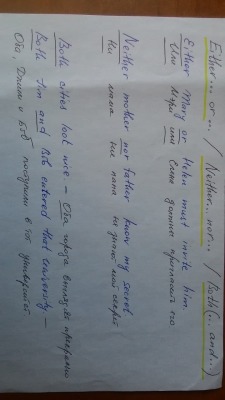 Either... or... / Neither.. nor... / Both (... and...)
Either Mary or Helen must invite him.
Или Мэри или Елена должна пригласить его
Neither mother nor father know my secret
Ни мама ни папа не знают мой секрет
Both cities look nice – Оба города выглядят прекрасно
Both Jim and Bob entered that university –
Оба, Джим и Боб поступили в тот университет